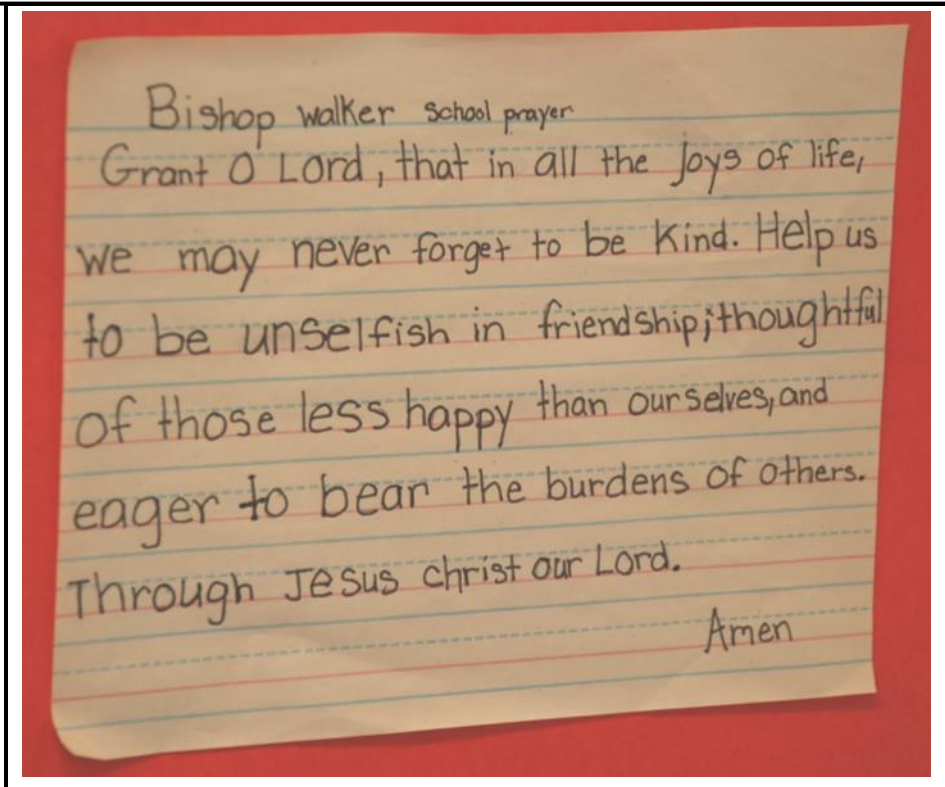 Bishop walker School prayer
Grant O Lord, that in all the joys of life,
we may never forget to be Kind. Help us
to be unselfish in friendship;thoughtful
of those less happy than ourselves,and
eager to bear the burdens of others.
Through Jesus christ our Lord.
Amen